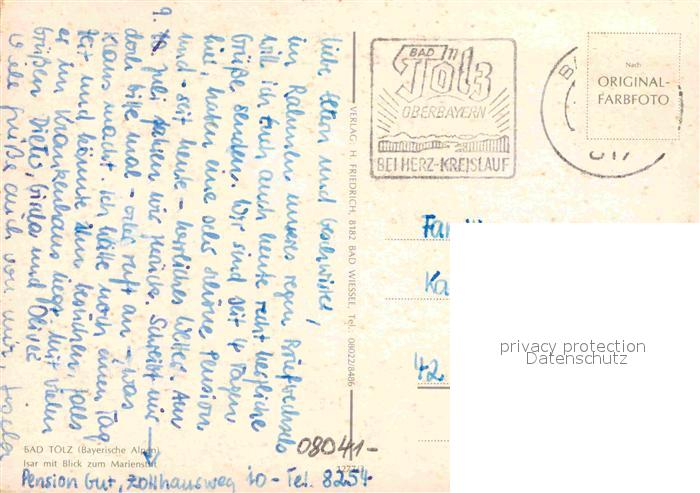 Liebe Eltern und Geschwister,
im Rahmen unseres regen Briefwechsels
will ich Euch auch heute recht herzliche
Grüße senden. Wir sind seit 4 Tagen
hier, haben eine sehr schöne Pension
und - seit heute - herrliches Wetter. Am
9. Juli fahren wir zurück. Schreibt mir
doch bitte mal - oder ruft an - was
Klaus macht. Ich hätte noch einen Tag
Zeit und könnte ihn besuchen, falls
er im Krankenhaus liegt. Mit vielen
Grüßen Dieter, Gisela und Oliver
Viele Grüße auch von mir, Gisela
Pension Gut, Zollhausweg 10 - Tel. 8254
08041-
BAD TÖLZ (Bayerische Alpen)
Isar mit Blick zum Marienstift
1277/3
VERLAG: H. FRIEDRICH, 8182 BAD WIESSEE, Tel.: 08022/8486
BAD
Tölz
OBERBAYERN
BEI HERZ-KREISLAUF
Nach
ORIGINAL-
FARBFOTO
Fa
Ka
42
privacy protection
Datenschutz